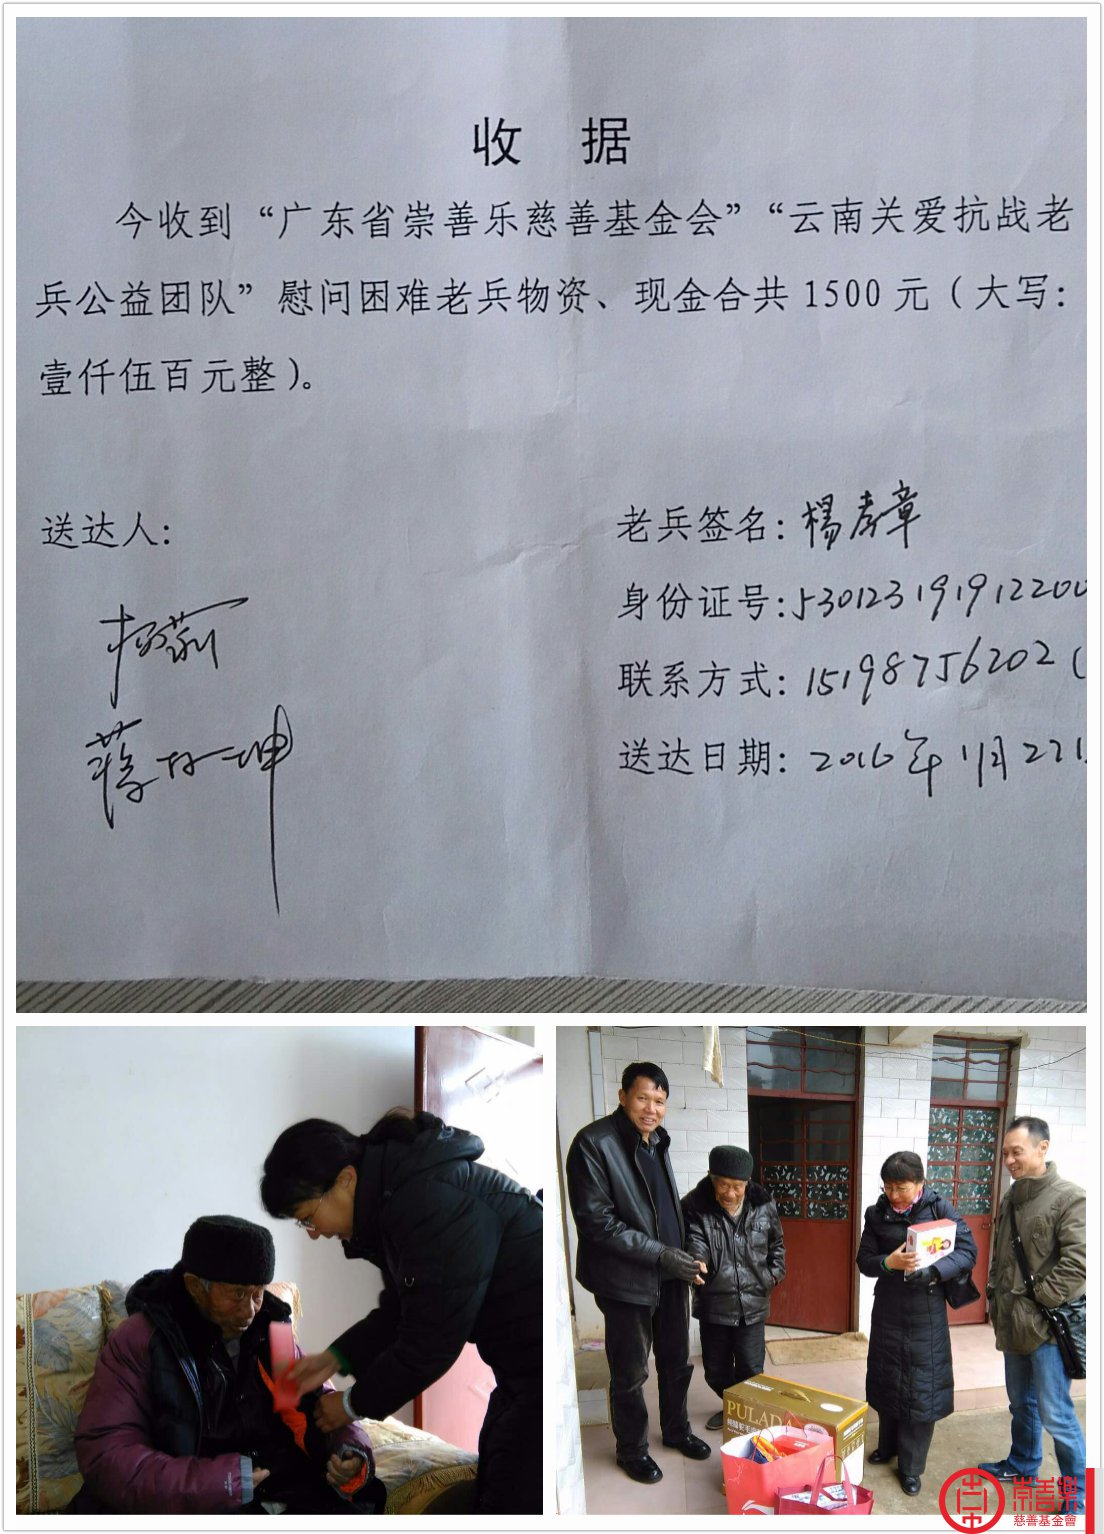 收 据
今收到“广东省崇善乐慈善基金会”“云南关爱抗战老
兵公益团队”慰问困难老兵物资、现金合共1500元（大写：
壹仟伍百元整）。
送达人：
老兵签名：楊孝章
身份证号：53012319191220
联系方式：15198756202（
送达日期：2016年11月22日
PULADA
崇善樂
慈善基金會